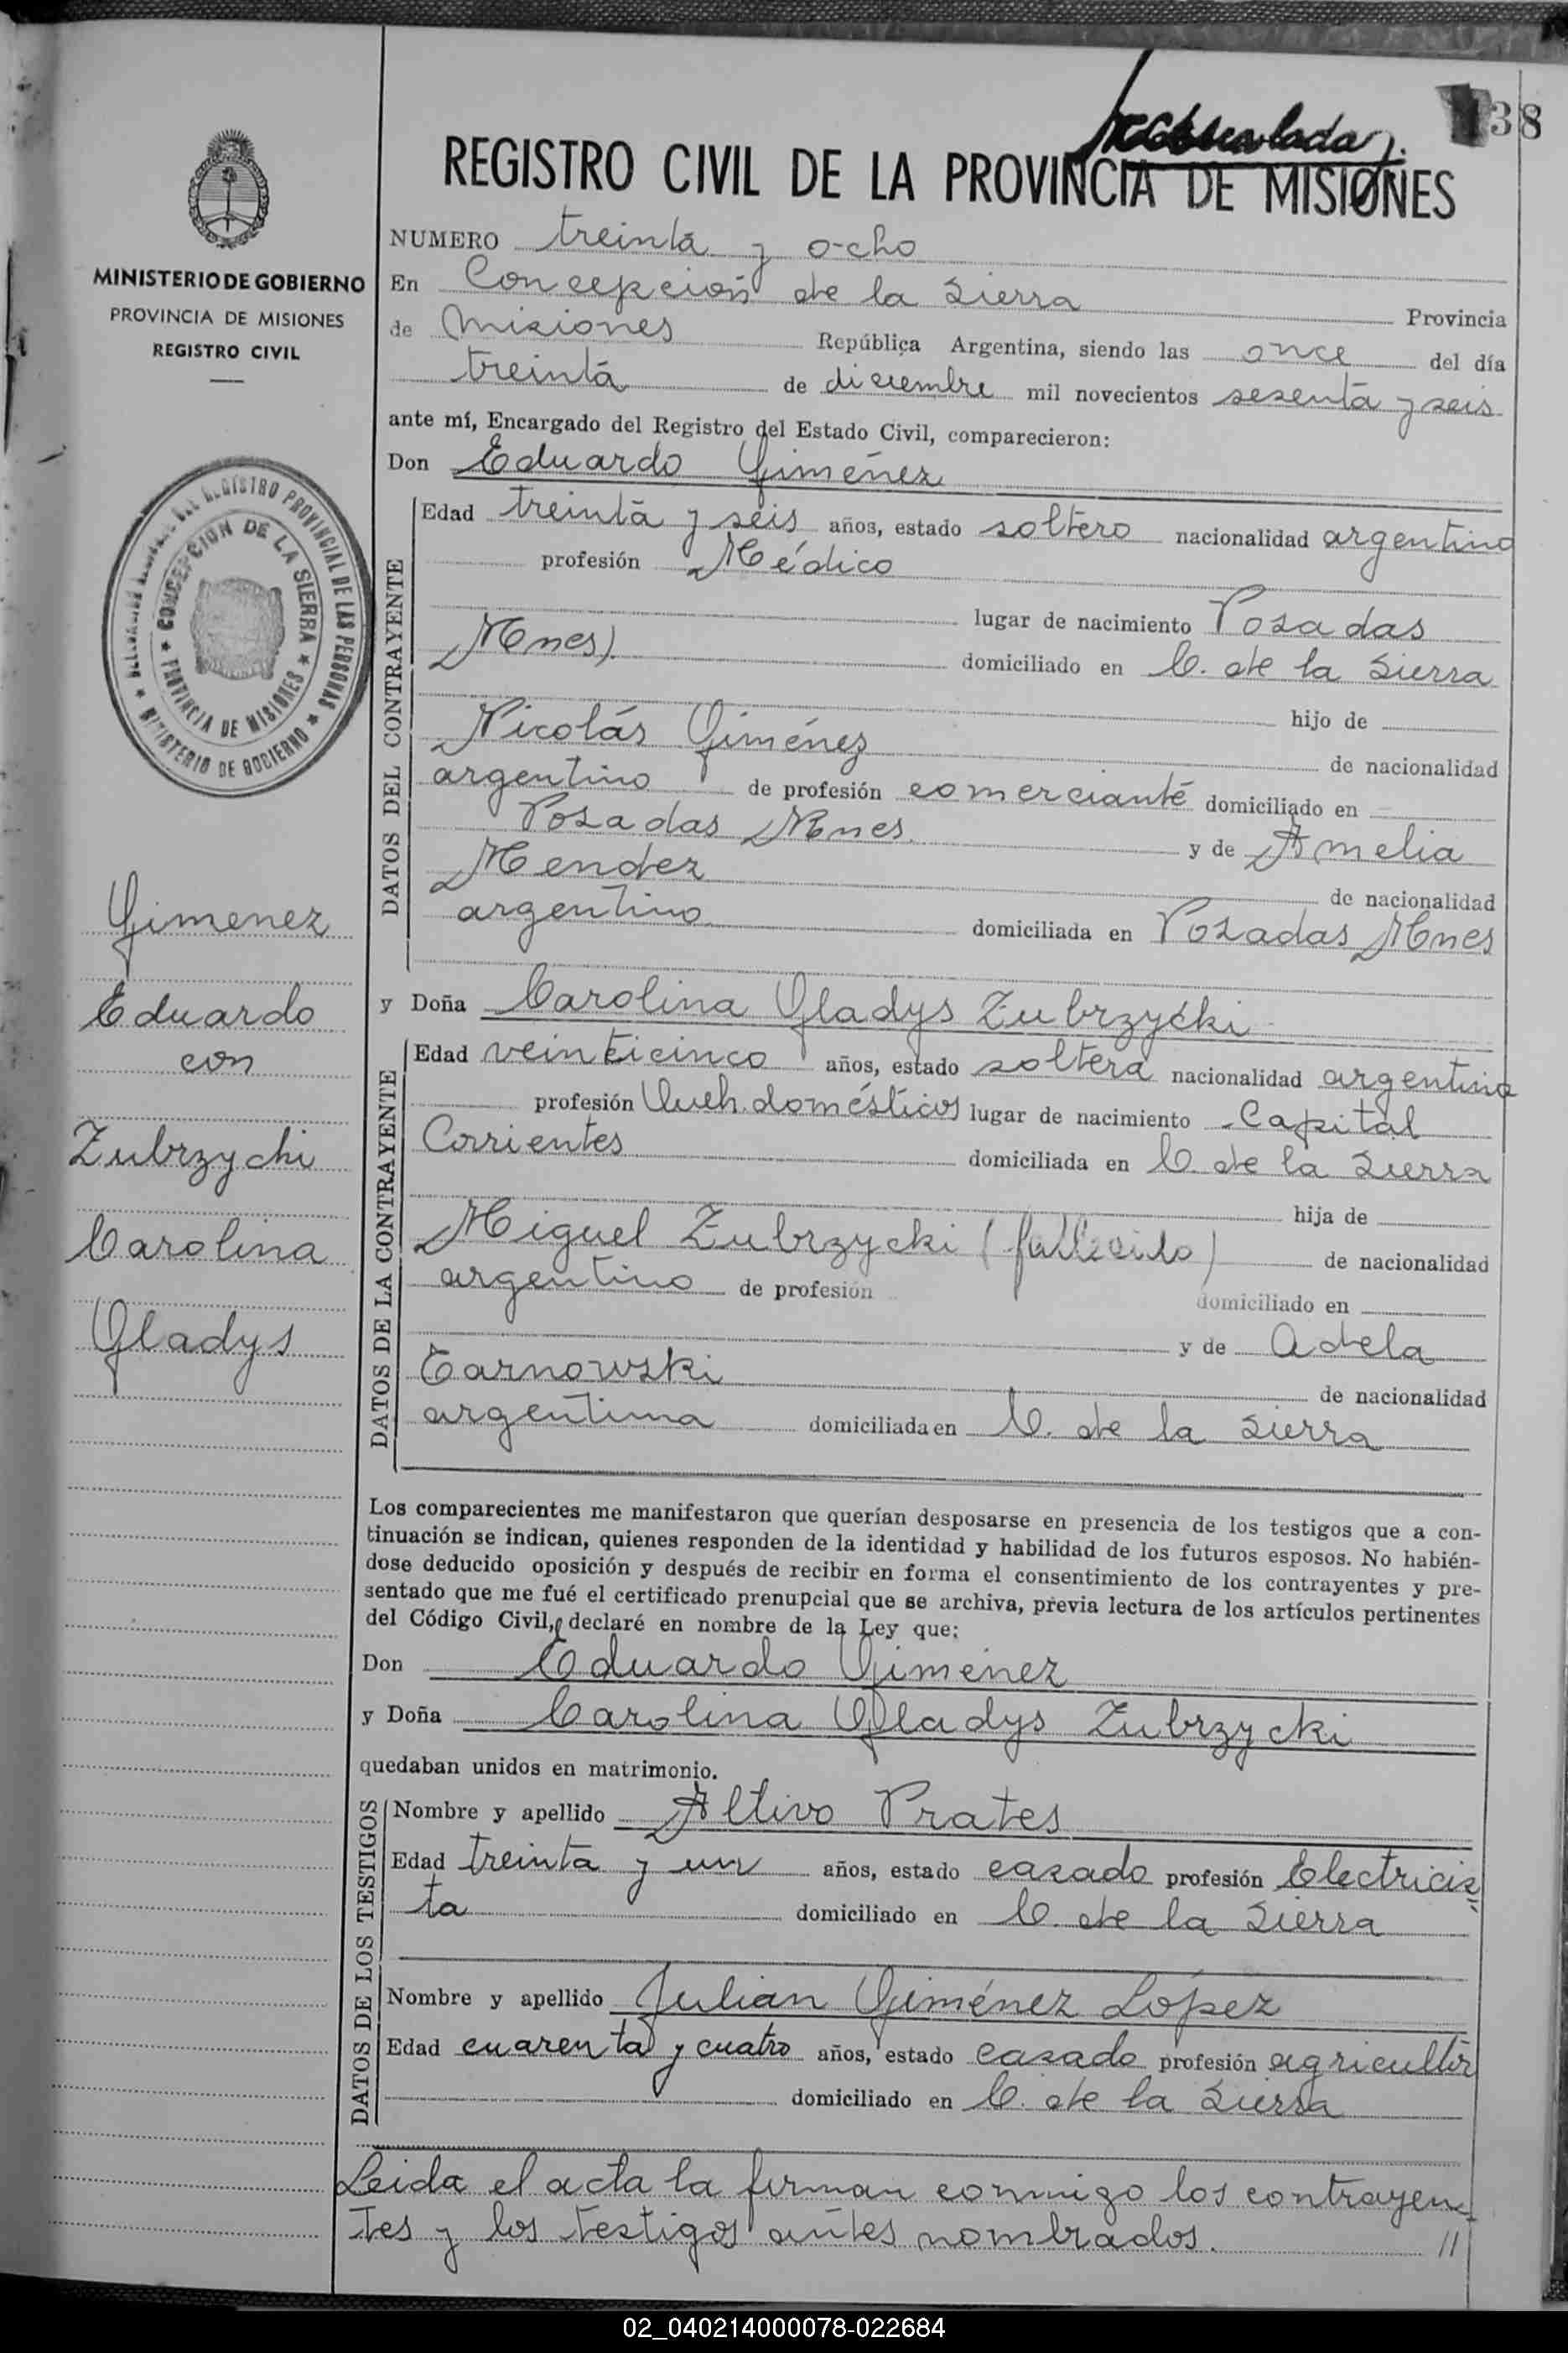 38
REGISTRO CIVIL DE LA PROVINCIA DE MISIONES
MINISTERIO DE GOBIERNO
PROVINCIA DE MISIONES
REGISTRO CIVIL
REGISTRO PROVINCIAL DE LAS PERSONAS
CONCEPCION DE LA SIERRA
PROVINCIA DE MISIONES
MINISTERIO DE GOBIERNO
Gimenez
Eduardo
con
Zubrzychi
Carolina
Gladys
NUMERO treinta y ocho
En Concepción de la Sierra Provincia
de Misiones República Argentina, siendo las once del día
treinta de diciembre mil novecientos sesenta y seis
ante mí, Encargado del Registro del Estado Civil, comparecieron:
Don Eduardo Giménez
DATOS DEL CONTRAYENTE
Edad treinta y seis años, estado soltero nacionalidad argentino
profesión Médico
lugar de nacimiento Posadas
Mnes) domiciliado en C. de la Sierra
hijo de
Nicolás Giménez de nacionalidad
argentino de profesión comerciante domiciliado en
Posadas Mnes. y de Amelia
Mendez de nacionalidad
argentino domiciliada en Posadas Mnes
y Doña Carolina Gladys Zubrzycki
DATOS DE LA CONTRAYENTE
Edad veinticinco años, estado soltera nacionalidad argentina
profesión Queh. domésticos lugar de nacimiento Capital
Corrientes domiciliada en C. de la Sierra
hija de
Miguel Zubrzycki (fallecido) de nacionalidad
argentino de profesión domiciliado en
y de Adela
Tarnowski de nacionalidad
argentina domiciliada en C. de la Sierra
Los comparecientes me manifestaron que querían desposarse en presencia de los testigos que a con-
tinuación se indican, quienes responden de la identidad y habilidad de los futuros esposos. No habién-
dose deducido oposición y después de recibir en forma el consentimiento de los contrayentes y pre-
sentado que me fué el certificado prenupcial que se archiva, previa lectura de los artículos pertinentes
del Código Civil, declaré en nombre de la Ley que:
Don Eduardo Gimenez
y Doña Carolina Gladys Zubrzycki
quedaban unidos en matrimonio.
DATOS DE LOS TESTIGOS
Nombre y apellido Altivo Prates
Edad treinta y un años, estado casado profesión Electricis=
ta domiciliado en C. de la Sierra
Nombre y apellido Julian Giménez López
Edad cuarenta y cuatro años, estado casado profesión agricultor
domiciliado en C. de la Sierra
Leida el acta la firman conmigo los contrayen=
tes y los testigos antes nombrados. //
02_040214000078-022684